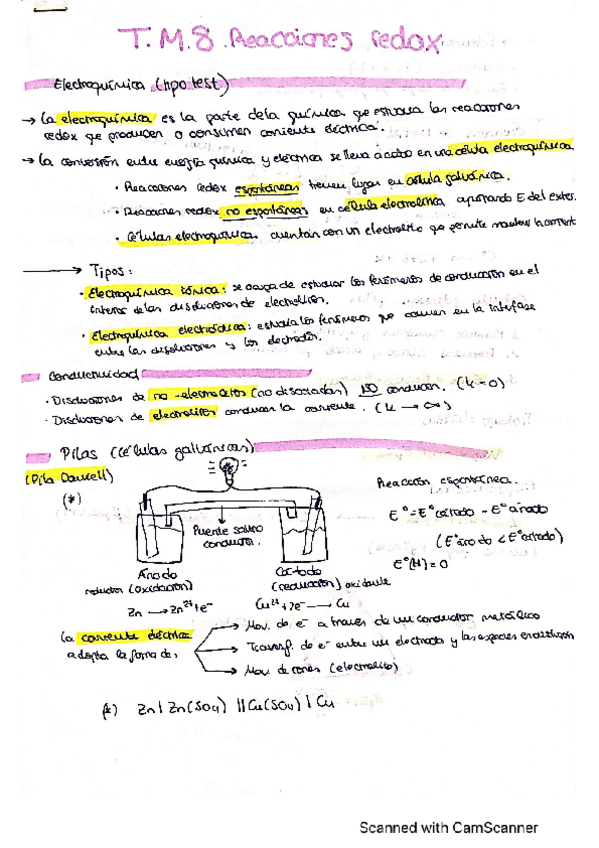 T.M.8. Reacciones redox
Electroquímica (tipo test)
→ La electroquímica es la parte de la química que estudia las reacciones
redox que producen o consumen corriente eléctrica.
→ La conversión entre energía química y eléctrica se lleva a cabo en una célula electroquímica
· Reacciones redox espontáneas tienen lugar en célula galvánica.
· Reacciones redox no espontáneas en célula electrolítica aportando E del exter.
· Células electroquímicas cuentan con un electrolito que permite mantener la corrient
→ Tipos:
· Electroquímica iónica: se ocupa de estudiar los fenómenos de conducción en el
interior de las disoluciones de electrolitos.
· Electroquímica electródica: estudia los fenómenos que ocurren en la interfase
entre las disoluciones y los electrodos.
Conductividad
· Disoluciones de no-electrolitos (no disociadas) NO conducen. (k=0)
· Disoluciones de electrolitos conducen la corriente. (k → ∞)
Pilas (células galvánicas)
(Pila Daniell)
(*)
Reacción espontánea.
E° = E° cátodo - E° ánodo
(E° ánodo < E° cátodo)
E°(H) = 0
Puente salino
conductor.
Ánodo
reductor (oxidación)
Zn → Zn²⁺ + e⁻
Cátodo
(reducción) oxidante
Cu²⁺ + 2e⁻ → Cu
La corriente eléctrica
adopta la forma de,
Mov. de e⁻ a través de un conductor metálico
Transf. de e⁻ entre un electrodo y las especies en disolución
Mov. de iones (electrolito)
(*) Zn | Zn(SO4) || Cu(SO4) | Cu
Scanned with CamScanner